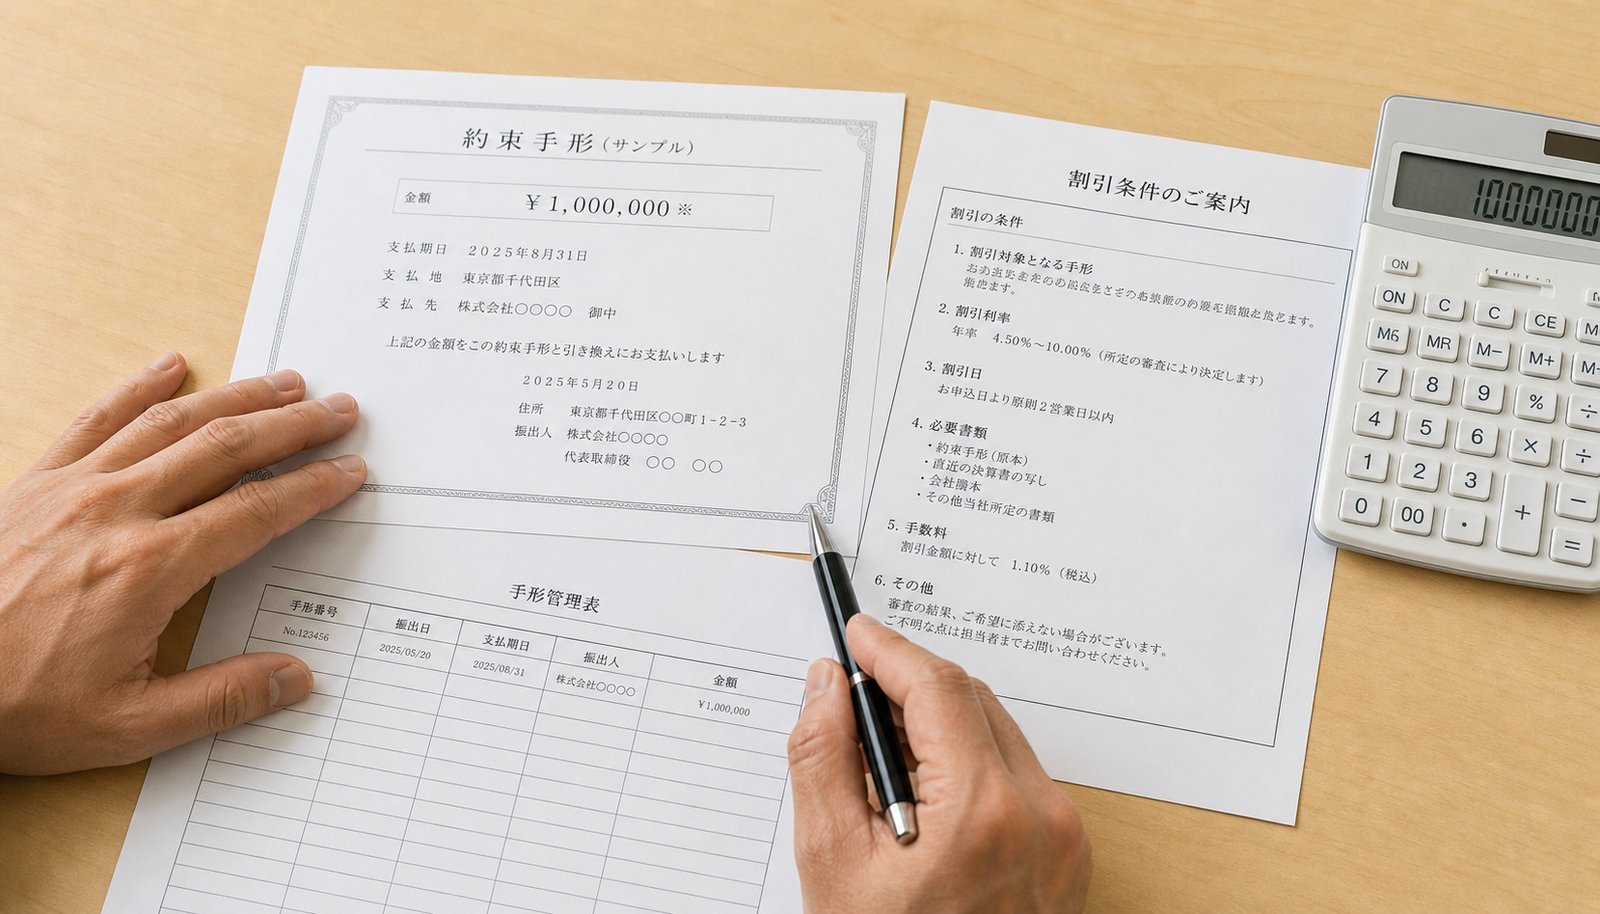 約束手形(サンプル)
金額 ¥1,000,000※
支払期日 2025年8月31日
支払地 東京都千代田区
支払先 株式会社○○○○ 御中
上記の金額をこの約束手形と引き換えにお支払いします
2025年5月20日
住所 東京都千代田区○○町1-2-3
振出人 株式会社○○○○
代表取締役 ○○ ○○
手形管理表
手形番号 振出日 支払期日 振出人 金額
No.123456 2025/05/20 2025/08/31 株式会社○○○○ ¥1,000,000
割引条件のご案内
割引の条件
1. 割引対象となる手形
2. 割引利率
年率 4.50%～10.00%(所定の審査により決定します)
3. 割引日
お申込日より原則2営業日以内
4. 必要書類
・約束手形(原本)
・直近の決算書の写し
・会社謄本
・その他当社所定の書類
5. 手数料
割引金額に対して 1.10%(税込)
6. その他
審査の結果、ご希望に添えない場合がございます。
ご不明な点は担当者までお問い合わせください。
1000000
ON
ON C C CE
M6 MR M− M+
7 8 9 % ÷
4 5 6 × ÷
1 2 3 + −
0 00 . =